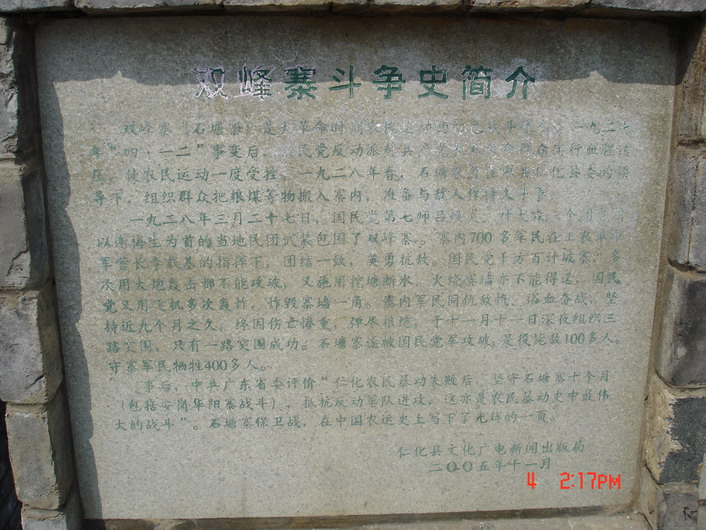 双峰寨斗争史简介
双峰寨（石塘寨）是大革命时期农民
一九二七
年“四·一二”事变后，国民党反动派
压，使农民运动一度受挫。一九二八年春，石塘农
仁化县委的领
导下，组织群众把粮煤等物搬入寨内，准备与敌人作持久斗争。
一九二八年三月二十七日，国民党第七师
以谢梅生为首的当地民团武装包围了双峰寨。寨内700多军民在工农革命
军营长李载基的指挥下，团结一致，英勇抗敌。国民党千方百计破寨，多
次用大炮轰击都不能攻破，又施用挖塘断水、火烧寨墙亦不能得逞，国民
党又用飞机多次轰炸，炸毁寨墙一角。寨内军民同仇敌忾，浴血奋战，坚
持近九个月之久，终因伤亡惨重，弹尽粮绝，于十一月十一日深夜组织三
路突围，只有一路突围成功。石塘寨遂被国民党军攻破。是役毙敌100多人。
守寨军民牺牲400多人。
事后，中共广东省委评价“仁化农民暴动失败后，坚守石塘寨十个月
（包括安岗华阳寨战斗），抵抗反动军队进攻，这亦是农民暴动史中最伟
大的战斗”。石塘寨保卫战，在中国农运史上写下了光辉的一页。
仁化县文化广电新闻出版局
二〇〇五年十一月
4 2:17PM